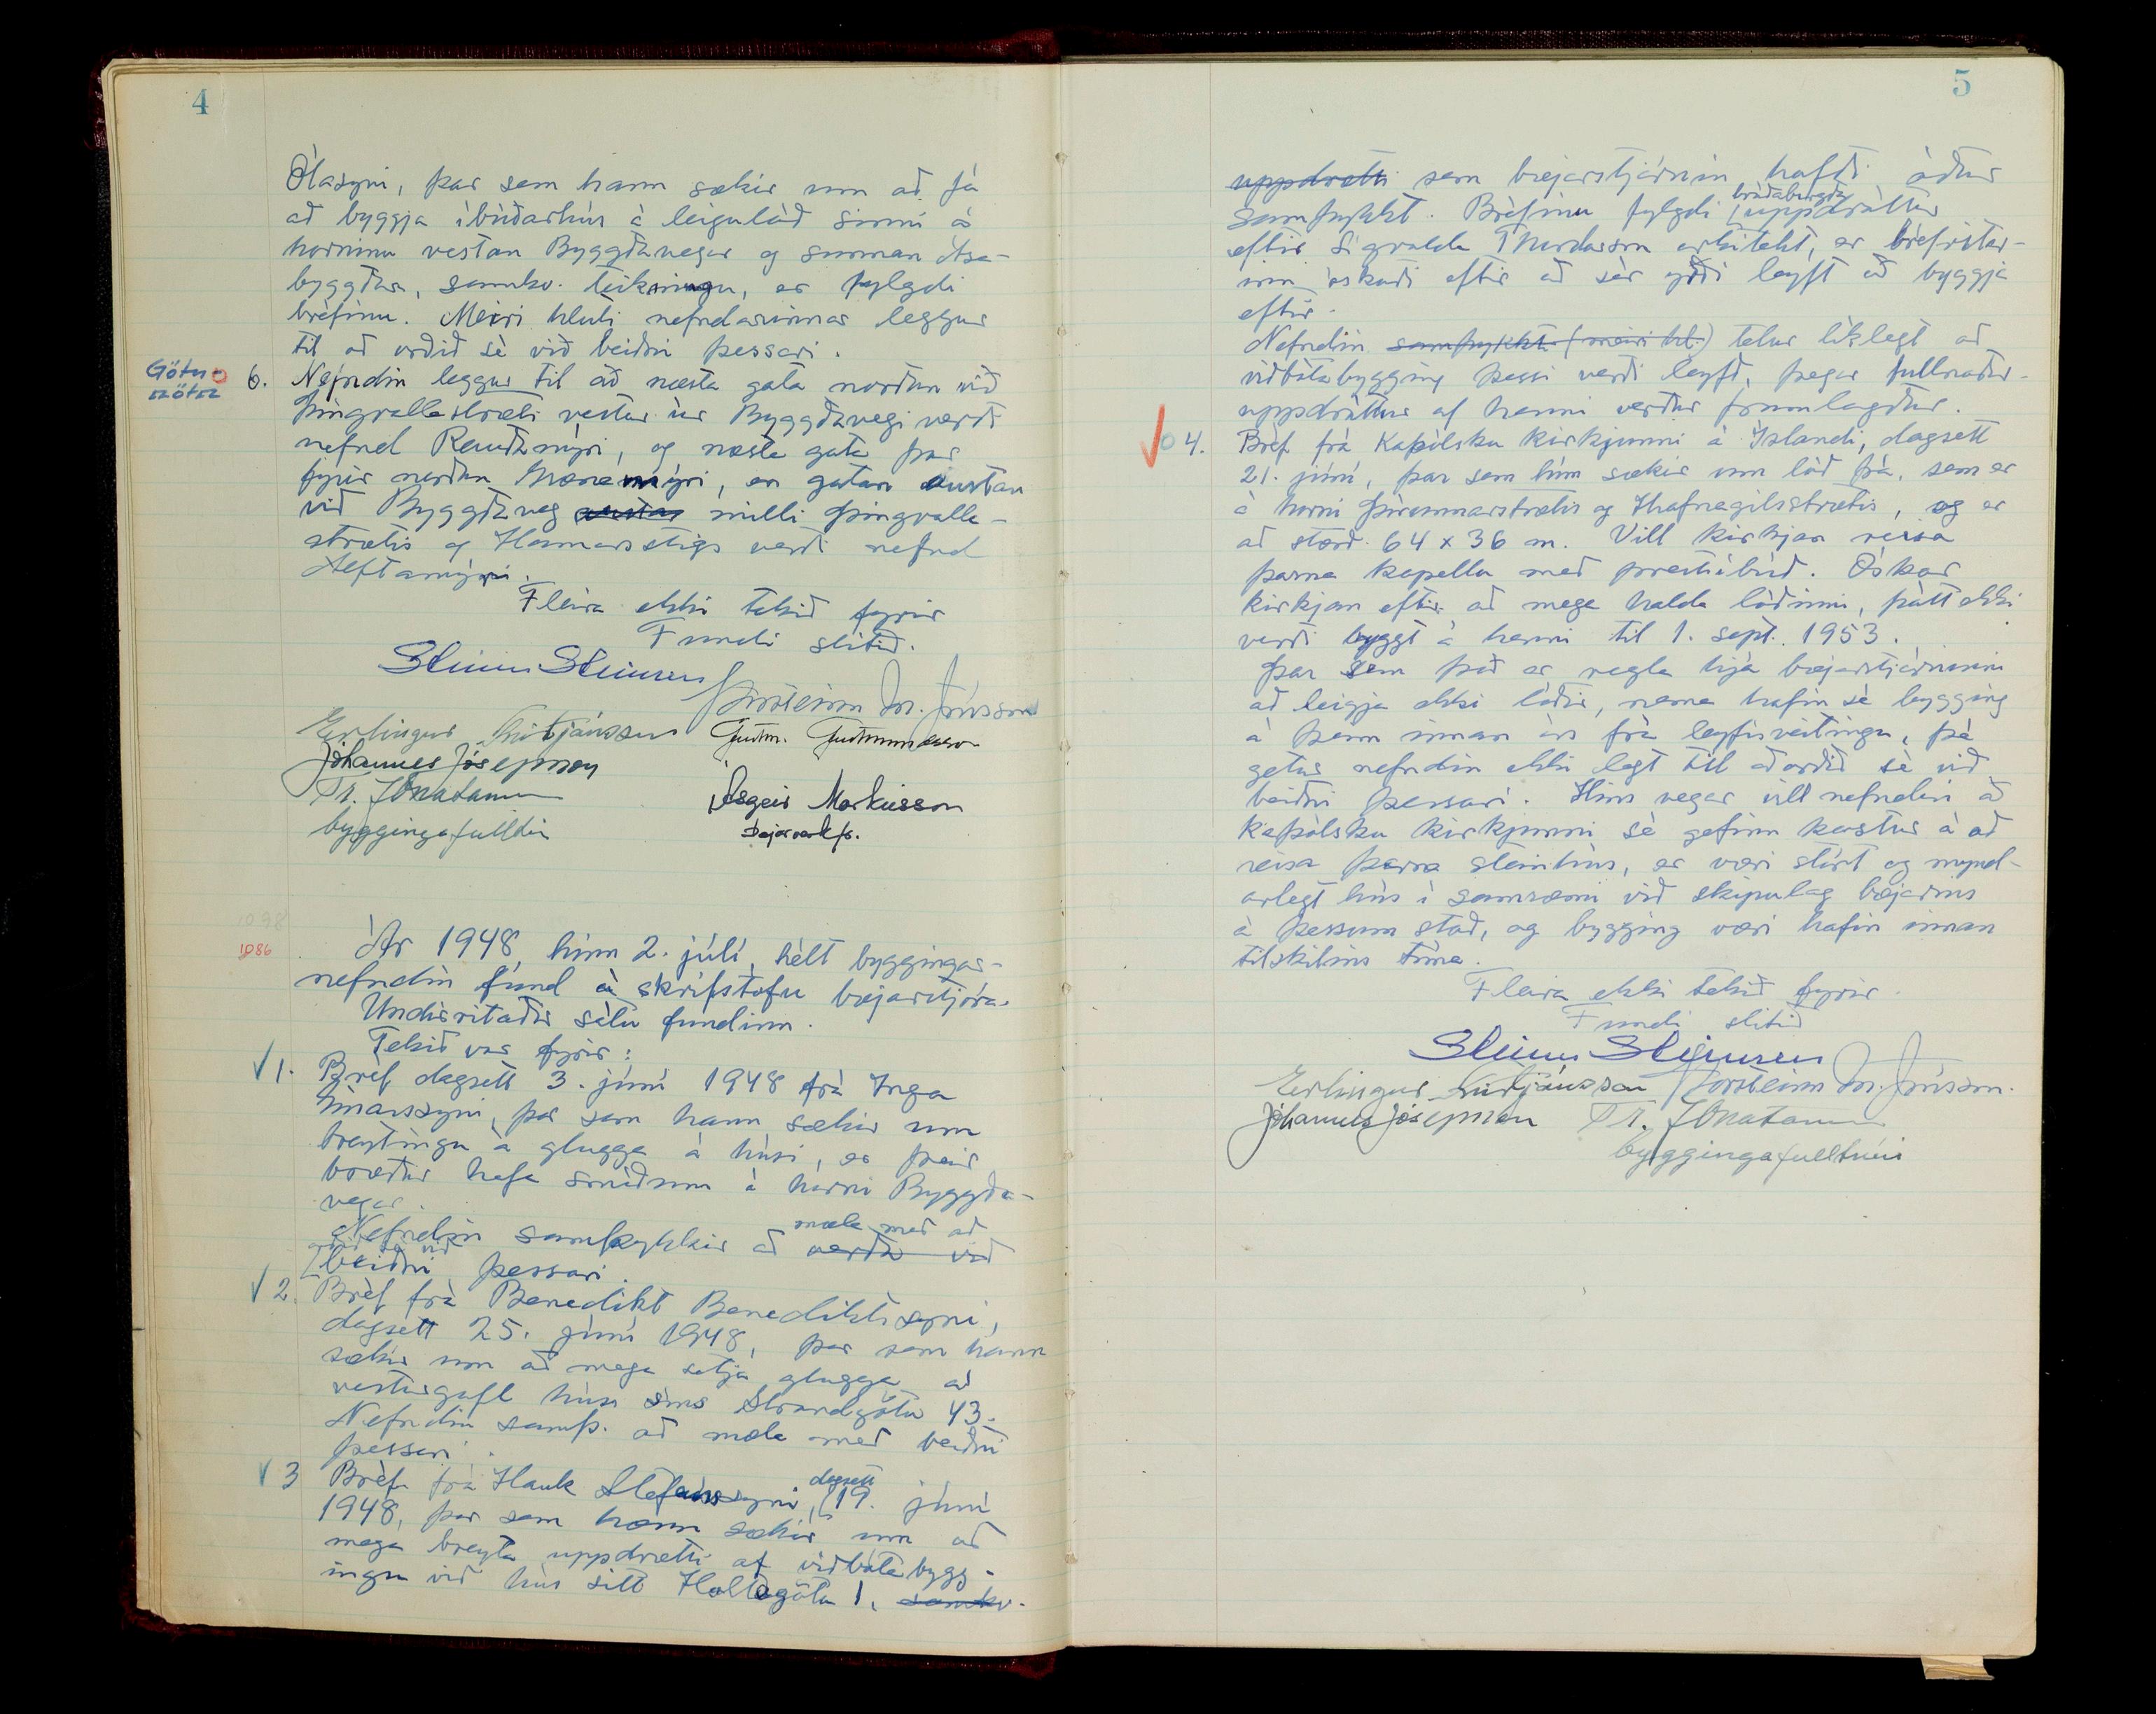 4
Ólasyni, þar sem hann sækir um að fá
að byggja íbúðarhús á leigulóð sinni á
horninu vestan Byggðavegar og sunnan Ása-
byggðar, samkv. teikningu, er fylgdi
bréfinu. Meiri hluti nefndarinnar leggur
til að orðið sé við beiðni þessari.
Götu-
nöfn
6. Nefndin leggur til að næsta gata norðan við
Þingvallastræti vestur úr Byggðavegi verði
nefnd Rauðamýri, og næsta gata þar
fyrir norðan Kráramýri, en gatan austan
við Byggðaveg vestan milli Þingvalla-
strætis og Hamarsstígs verði nefnd
Álftamýri.
Fleira ekki tekið fyrir
Fundi slitið.
Steinn Steinsen
Þorsteinn M. Jónsson
Erlingur Friðjónsson Guðm. Guðmundsson
Jóhannes Jósepsson
Tr. Jónatansson Ásgeir Markússon
byggingafulltrúi bæjarverkfr.
1086
Ár 1948, hinn 2. júlí, hélt byggingar-
nefndin fund á skrifstofu bæjarstjóra.
Undirritaðir sátu fundinn.
Tekið var fyrir:
1. Bréf dagsett 3. júní 1948 frá Inga
þar sem hann sækir um
breytingu á glugga á húsi, er þeir
bræður hafa smíðum á horni Byggða-
vegar.
mæla með að
Nefndin samþykkir að verða við
orðið sé við
beiðni þessari.
2. Bréf frá Benedikt Benediktssyni,
dagsett 25. júní 1948, þar sem hann
sækir um að mega setja glugga á
vesturgafl húss síns Strandgötu 43.
Nefndin samþ. að mæla með beiðni
þessari.
dagsett
3 Bréf frá Hauk Stefánssyni, 19. júní
1948, þar sem hann sækir um að
mega breyta uppdrætti af viðbótabygg-
ingu við hús sitt Holtagötu 1, samkv.
5
uppdrætti sem bæjarstjórnin hafði áður
bráðabirgða
samþykkt. Bréfinu fylgdi uppdráttur
eftir Sigvalda Thordarson arkitekt, er bréfritar-
inn óskaði eftir að sér yrði leyft að byggja
eftir.
Nefndin samþykkti (meiri hl.) telur líklegt að
viðbótabygging þessi verði leyfð, þegar fullnaðar-
uppdráttur af henni verður framlagður.
4. Bréf frá Kaþólsku kirkjunni á Íslandi, dagsett
21. júní, þar sem hún sækir um lóð þá, sem er
á horni Þórunnarstrætis og Hrafnagilsstrætis, og er
að stærð 64 x 36 m. Vill kirkjan reisa
þarna kapellu með prestsíbúð. Óskar
kirkjan eftir að mega halda lóðinni, þótt ekki
verði byggt á henni til 1. sept. 1953.
Þar sem það er regla hjá bæjarstjórninni
að leigja ekki lóðir, nema hafin sé bygging
á þeim innan árs frá leyfisveitingu, þá
getur nefndin ekki lagt til að orðið sé við
beiðni þessari. Hins vegar vill nefndin að
Kaþólsku kirkjunni sé gefinn kostur á að
reisa þarna steinhús, er væri stórt og mynd-
arlegt hús í samræmi við skipulag bæjarins
á þessum stað, og bygging væri hafin innan
tilskilins tíma.
Fleira ekki tekið fyrir.
Fundi slitið
Steinn Steinsen
Erlingur Friðjónsson Þorsteinn M. Jónsson.
Jóhannes Jósepsson Tr. Jónatansson
byggingafulltrúi